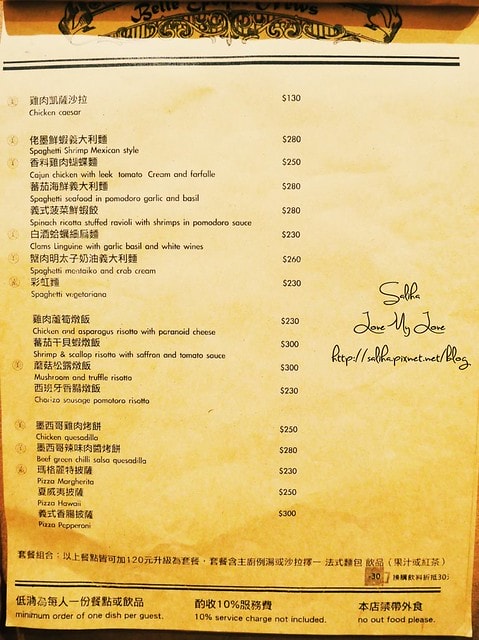 雞肉凱薩沙拉 $130
Chicken caesar
佬墨鮮蝦義大利麵 $280
Spaghetti Shrimp Mexican style
香料雞肉蝴蝶麵 $250
Cajun chicken with leek tomato Cream and farfalle
蕃茄海鮮義大利麵 $280
Spaghetti seafood in pomodoro garlic and basil
義式菠菜鮮蝦餃 $280
Spinach ricotta stuffed ravioli with shrimps in pomodoro sauce
白酒蛤蠣細扁麵 $230
Clams Linguine with garlic basil and white wines
蟹肉明太子奶油義大利麵 $260
Spaghetti mentaiko and crab cream
彩虹麵 $230
Spaghetti vegetariana
雞肉蘆筍燉飯 $230
Chicken and asparagus risotto with paranoid cheese
蕃茄干貝蝦燉飯 $300
Shrimp & scallop risotto with saffron and tomato sauce
蘑菇松露燉飯 $300
Mushroom and truffle risotto
西班牙香腸燉飯 $230
Chorizo sausage pomotoro risotto
墨西哥雞肉烤餅 $250
Chicken quesadilla
墨西哥辣味肉醬烤餅 $280
Beef green chilli salsa quesadilla
瑪格麗特披薩 $230
Pizza Margherita
夏威夷披薩 $250
Pizza Hawaii
義式香腸披薩 $300
Pizza Pepperoni
Saliha
Love My Love
http://saliha.pixnet.net/blog
套餐組合：以上餐點皆可加120元升級為套餐，套餐含主廚例湯或沙拉擇一 法式麵包 飲品（果汁或紅茶）
-30 換購飲料折抵30元
低消為每人一份餐點或飲品
minimum order of one dish per guest.
酌收10%服務費
10% service charge not included.
本店禁帶外食
no out food please.